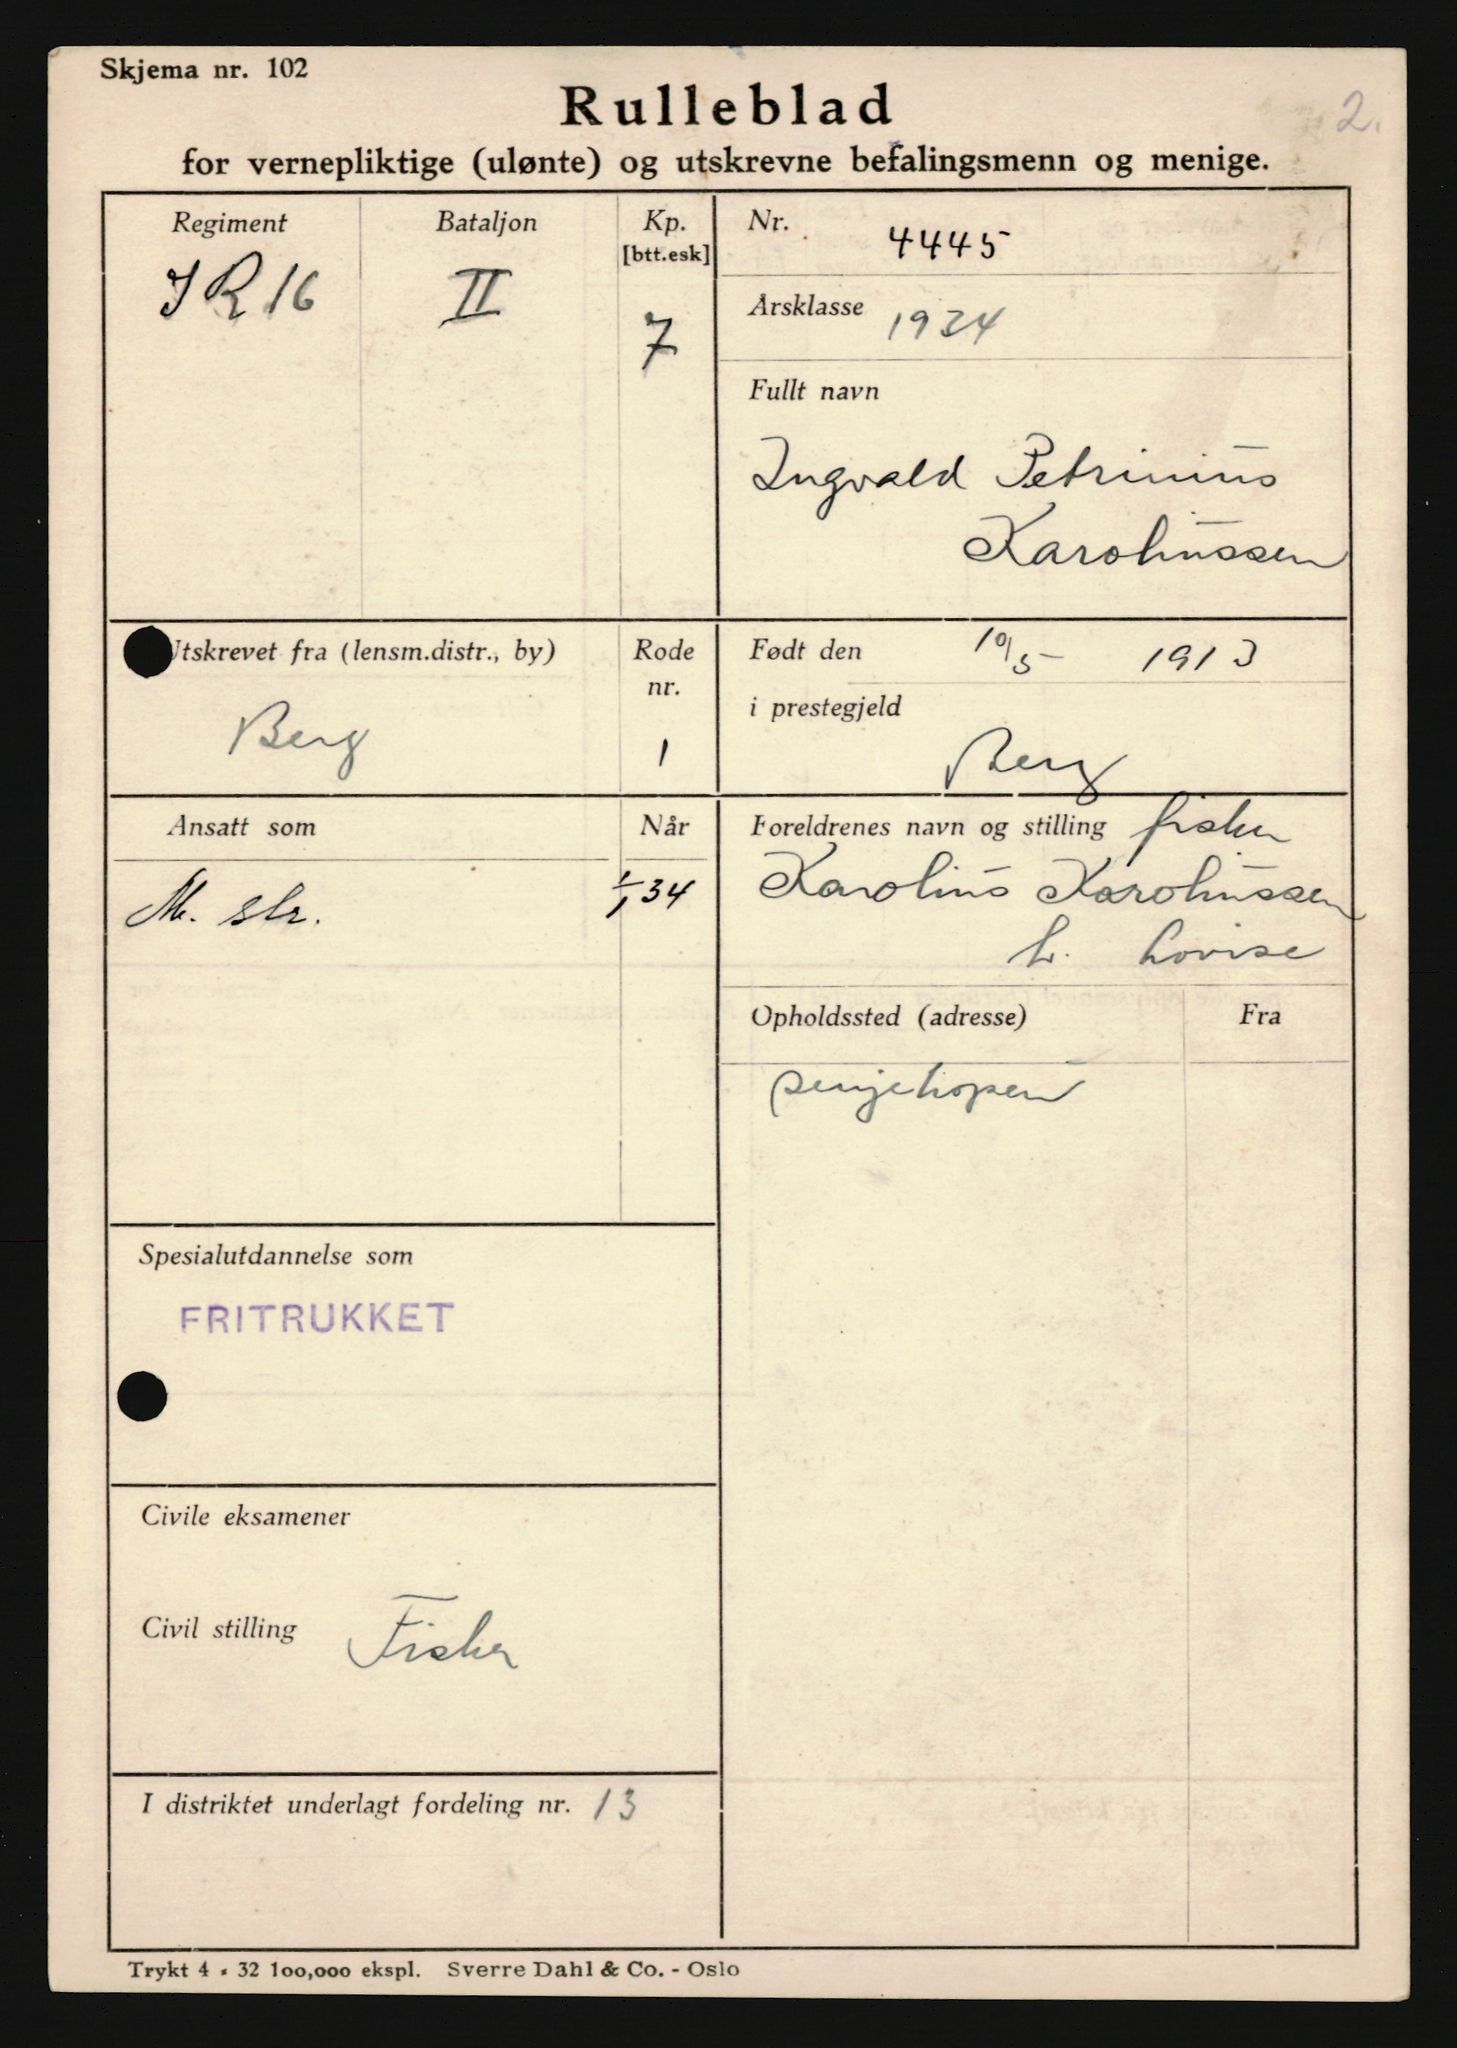 Skjema nr. 102
2.
Rulleblad
for vernepliktige (ulønte) og utskrevne befalingsmenn og menige.
Regiment
IR 16
Bataljon
II
Kp.
[btt.esk]
7
Nr.
4445
Årsklasse 1934
Fullt navn
Ingvald Petrinius
Karoliussen
Utskrevet fra (lensm.distr., by)
Berg
Rode
nr.
1
Født den 10/5 1913
i prestegjeld
Berg
Ansatt som
M. str.
Når
1/1 34
Foreldrenes navn og stilling fisker
Karolius Karoliussen
h. Lovise
Opholdssted (adresse)
Senjehopen
Fra
Spesialutdannelse som
FRITRUKKET
Civile eksamener
Civil stilling Fisker
I distriktet underlagt fordeling nr. 13
Trykt 4 - 32 100,000 ekspl. Sverre Dahl & Co. - Oslo